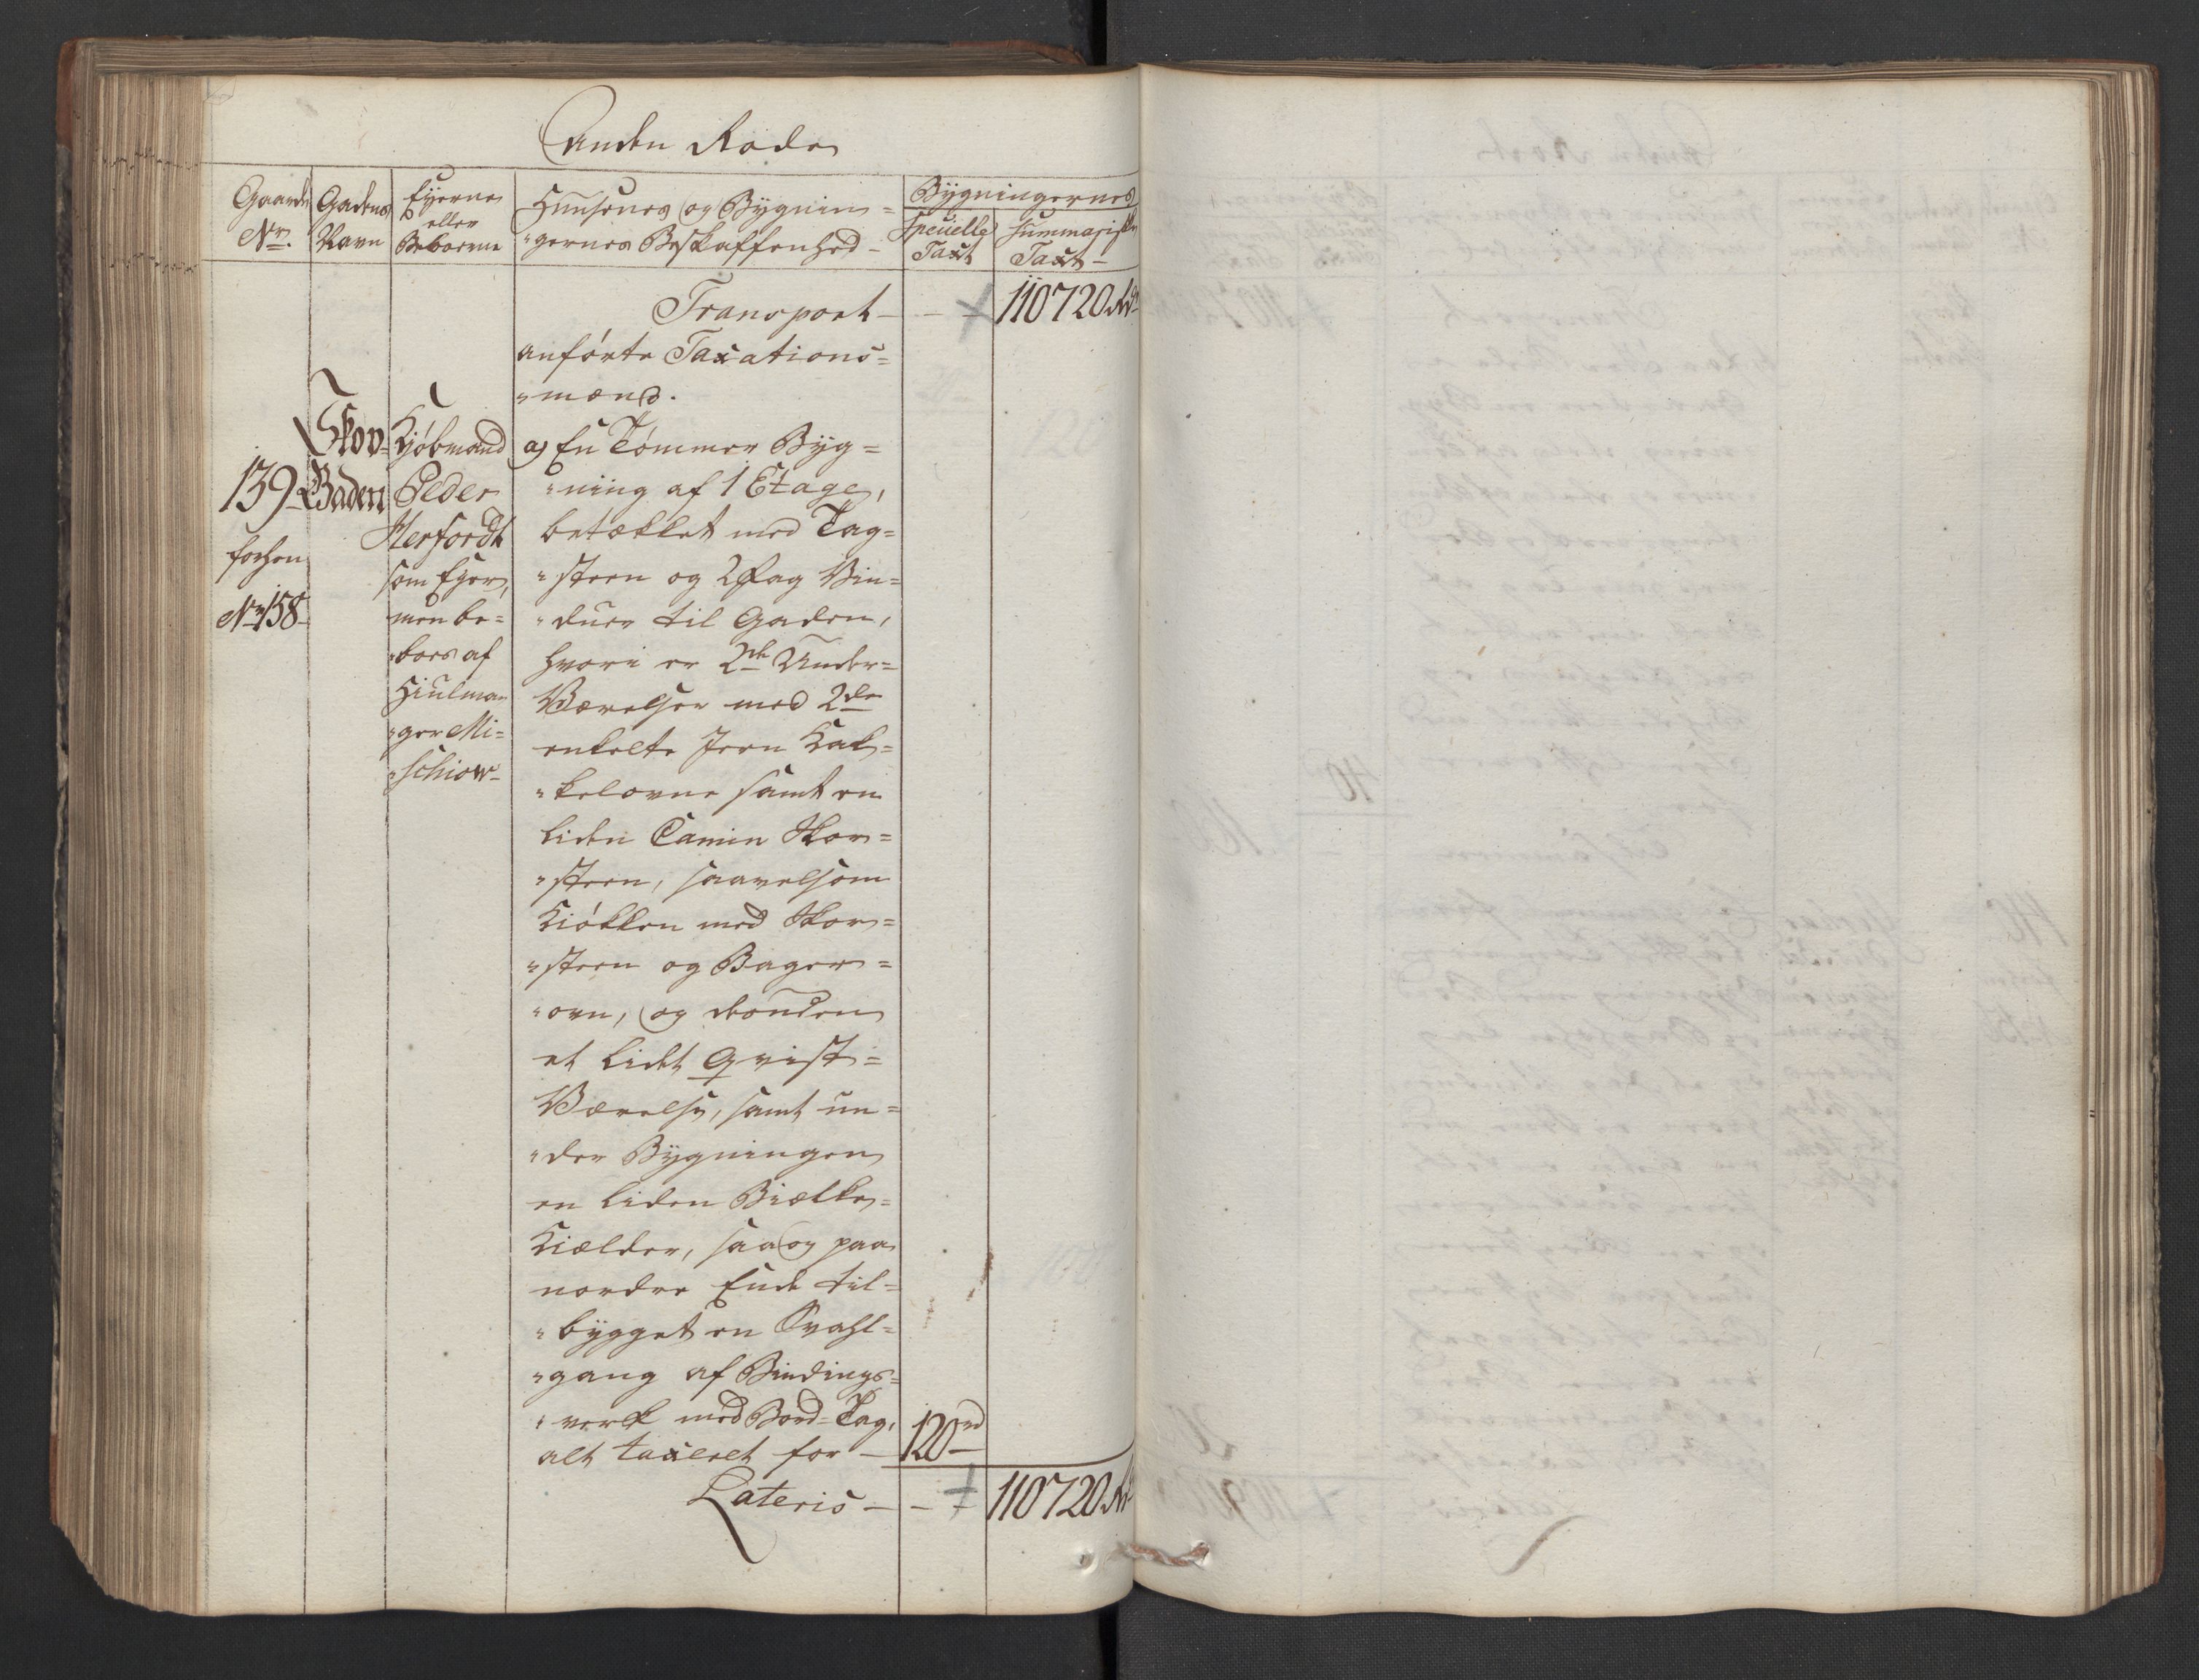 Anden Rode
Gaardns Nr.
Gadens Navn
Eyerne eller Beboerne
Huusenes og Bygnin=
"gernes Beskaffenhed
Bygningernes
Speuielle Taxt
Summariske Taxt
Transport — 110720 Rdr
anførte Taxations=
"mænd.
139 forhen Nr 158
Skov-Baden
Kjöbmand
Peder
Herfordt
som Ejer,
men be=
"boes af
Hiulma=
"ger Mi=
"schiow
a) En Tömmer Byg=
"ning af 1 Etage,
betækket med Tag=
"steen og 2 Fag Vin=
"duer til Gaden,
hvori er 2de Under=
Værelser med 2de
enkelte Jern Kak=
"kelovne samt en
liden Camin Skor=
"steen, saavelsom
Kiökken med Skor=
"steen og Bager=
"ovn, og desuden
et lidet Qvist=
Værelse, samt un=
"der Bygningen
en liden Bielke=
Kielder, saa og paa
nordre Ende til=
"bygget en Svahl=
"gang af Bindings=
"verk med Bord=Tag,
alt taxeret for — 120 rd
Lateris — 110720 Rd